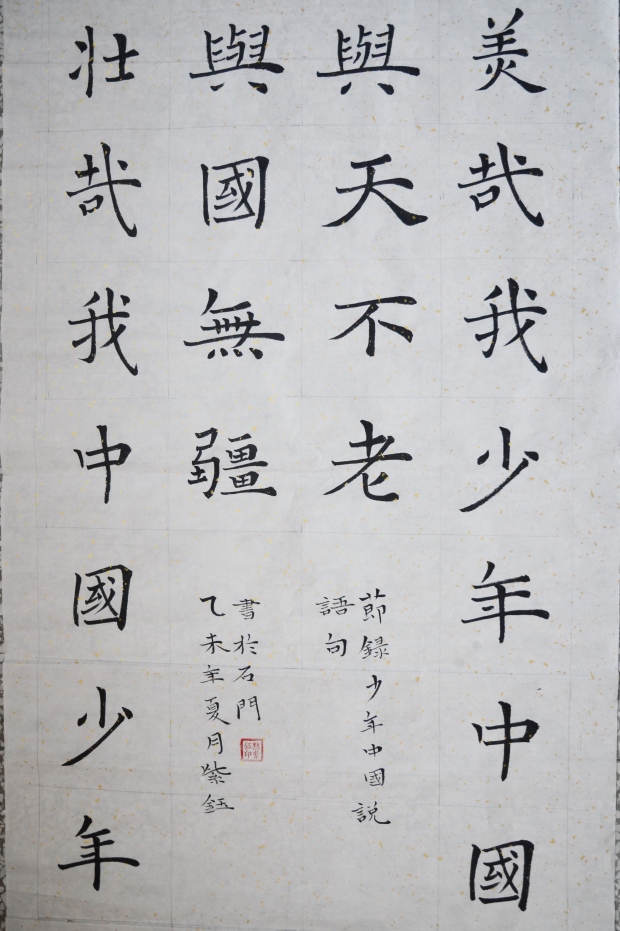 美哉我少年中國
與天不老
與國無疆
壯哉我中國少年
節録少年中國説
語句
書於石門
乙未年夏月紫鈺